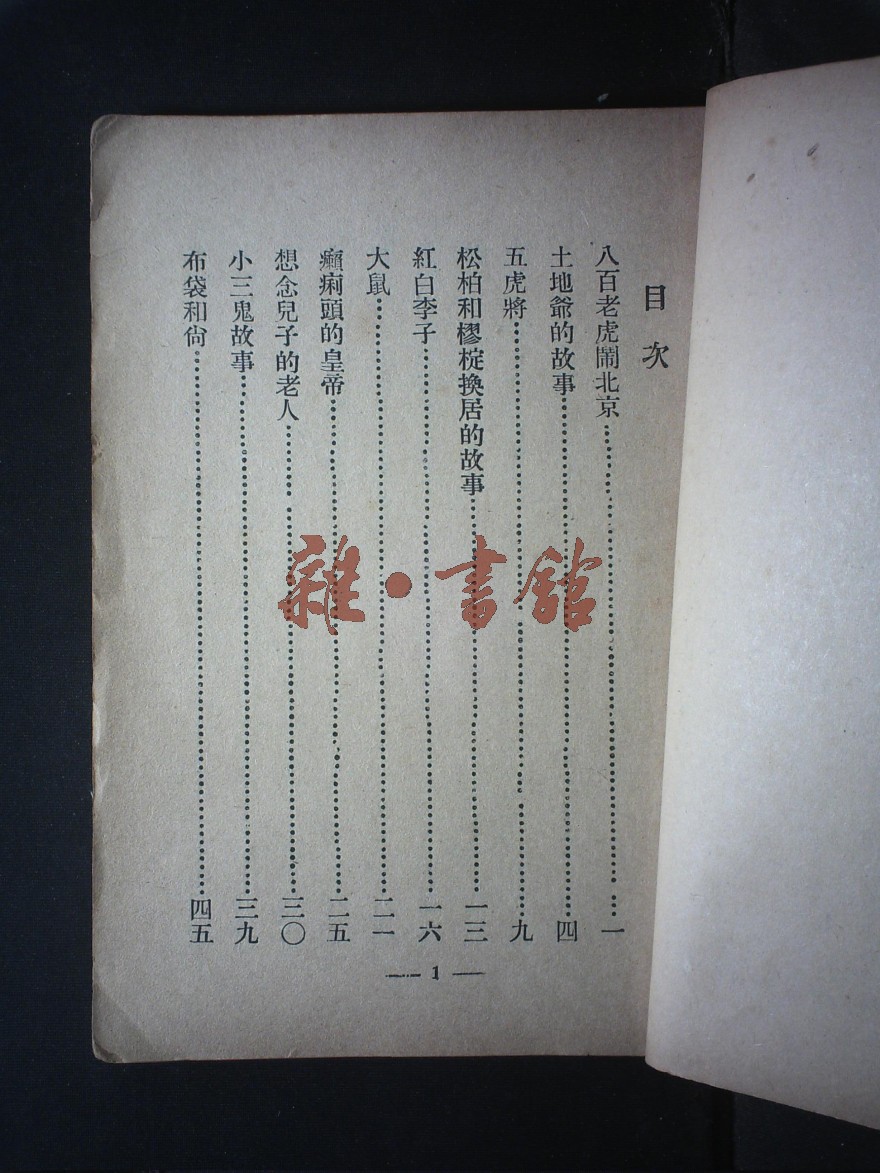 目次
八百老虎鬧北京……一
土地爺的故事……四
五虎將……九
松柏和樛椗換居的故事……一三
紅白李子……一六
大鼠……二一
癩痢頭的皇帝……二五
想念兒子的老人……三〇
小三鬼故事……三九
布袋和尙……四五
— 1 —
雜·書館